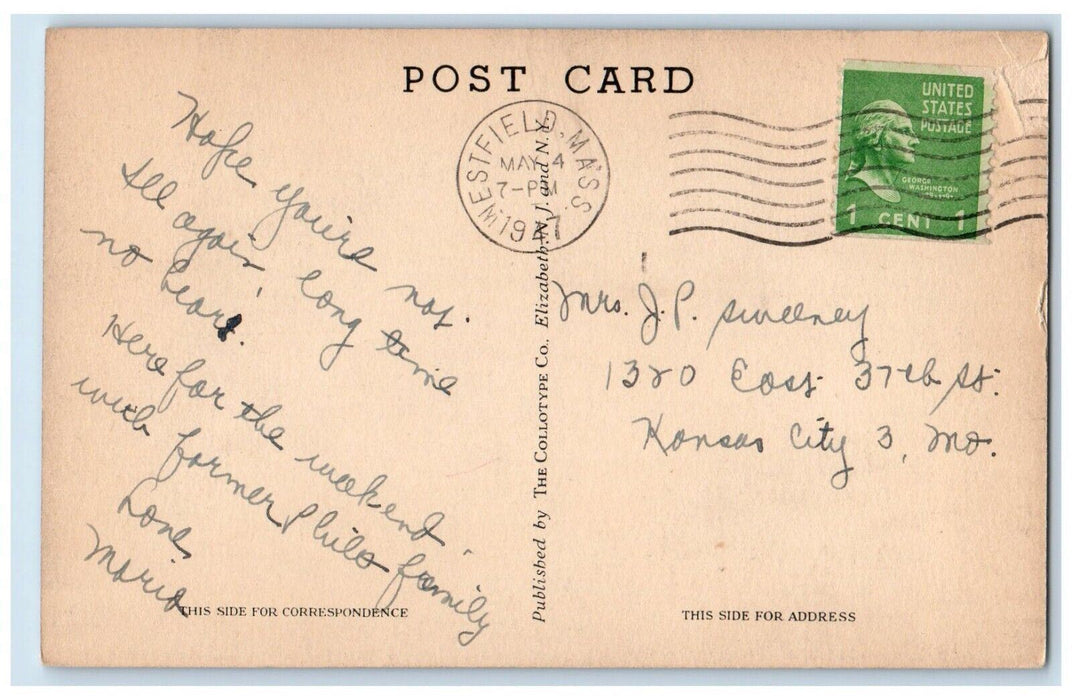 POST CARD
WESTFIELD, MASS.
MAY 4
7-PM
1947
UNITED
STATES
POSTAGE
GEORGE
WASHINGTON
1 CENT 1
Hope you're not
ill again, long time
no hear.
Here for the weekend
with former Phila family
Love
Maria
Published by THE COLLOTYPE CO., Elizabeth, N. J. and N. Y.
Mrs. J. P. Sweeney
1320 East 37th St.
Kansas City 3, Mo.
THIS SIDE FOR CORRESPONDENCE
THIS SIDE FOR ADDRESS